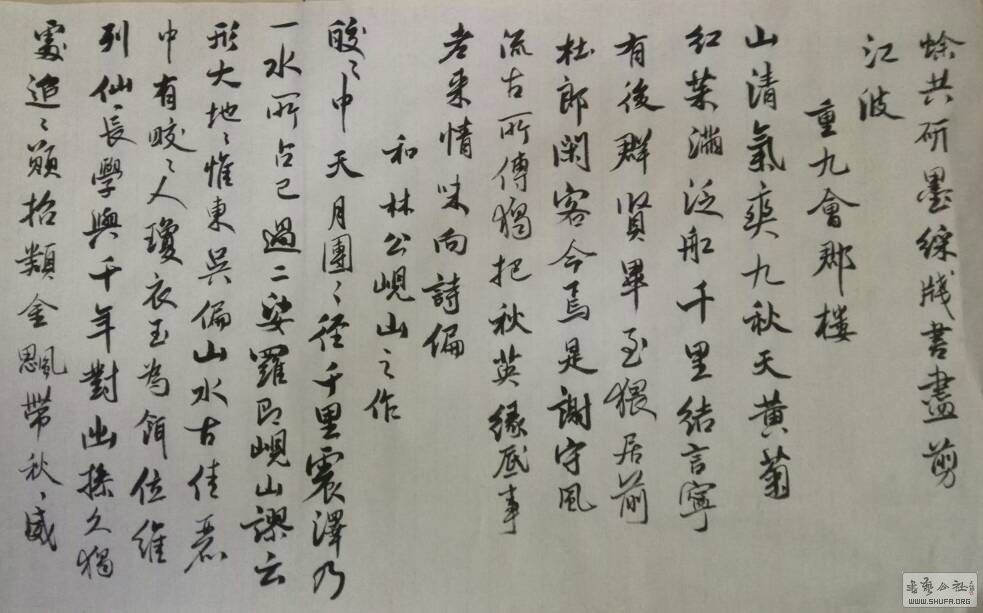 蜍共研墨綵牋書盡剪
江波
重九會郡樓
山清氣爽九秋天黃菊
紅茱滿泛船千里結言寧
有後群賢畢至猥居前
杜郎閑客今焉是謝守風
流古所傳獨把秋英緣底事
老來情味向詩偏
和林公峴山之作
皎〻中天月團〻徑千里震澤乃
一水所占已過二娑羅即峴山謬云
形大地〻惟東吳偏山水古佳麗
中有皎〻人瓊衣玉為餌位維
列仙長學與千年對幽操久獨
處迢〻願招類金飈帶秋威
書藝公社
WWW.SHUFA.ORG